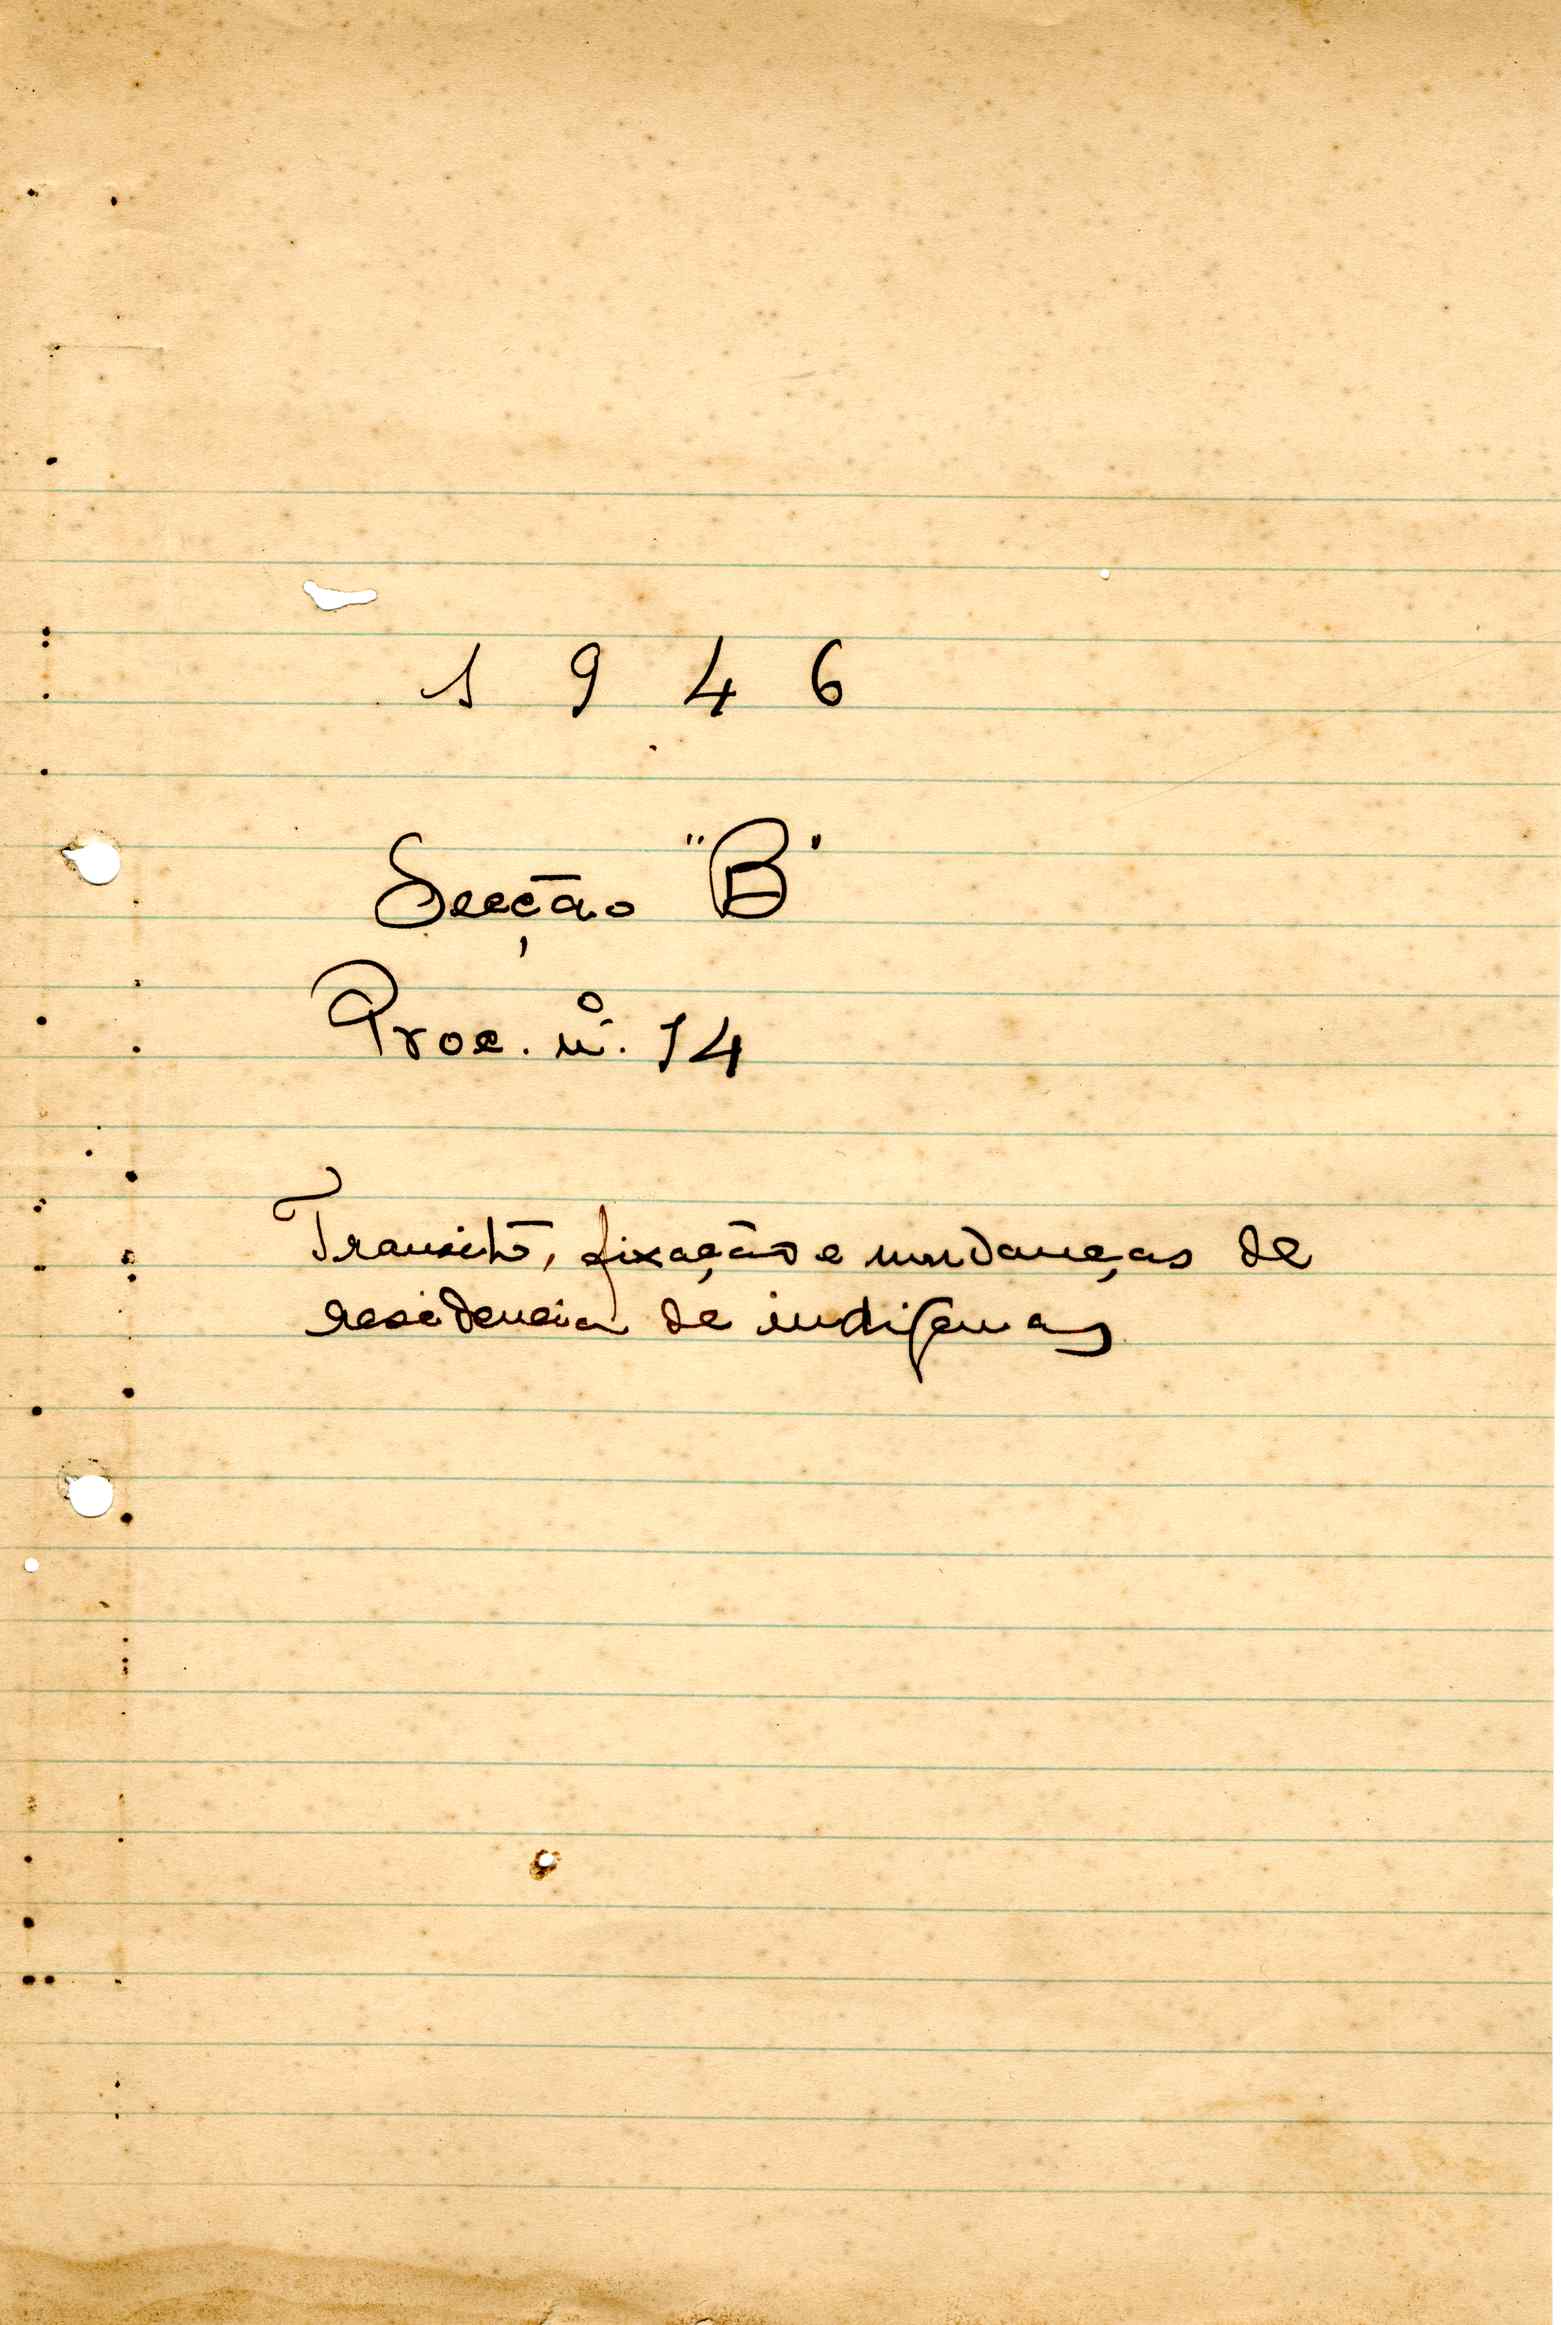 1946
Secção "B"
Proc. nº. 14
Transito, fixação e mudanças de
residencia de indigenas